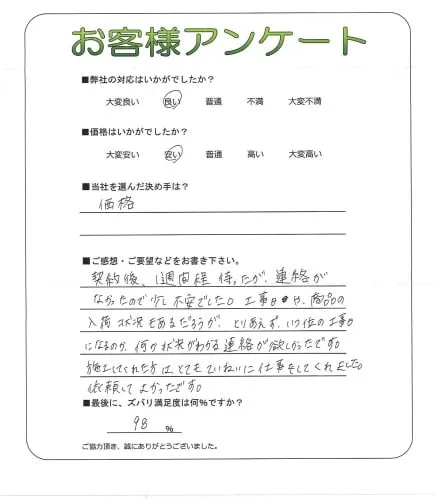 お客様アンケート
■弊社の対応はいかがでしたか？
大変良い 良い 普通 不満 大変不満
■価格はいかがでしたか？
大変安い 安い 普通 高い 大変高い
■当社を選んだ決め手は？
価格
■ご感想・ご要望などをお書き下さい。
契約後、1週間程待ったが、連絡が
なかったので少し不安でした。工事日や、商品の
入荷状況もあるだろうが、とりあえず、いつ位の工事日
になるのか、何か状況がわかる連絡が欲しかったです。
施工してくれた方はとてもていねいに仕事をしてくれました。
依頼してよかったです。
■最後に、ズバリ満足度は何％ですか？
98 %
ご協力頂き、誠にありがとうございました。